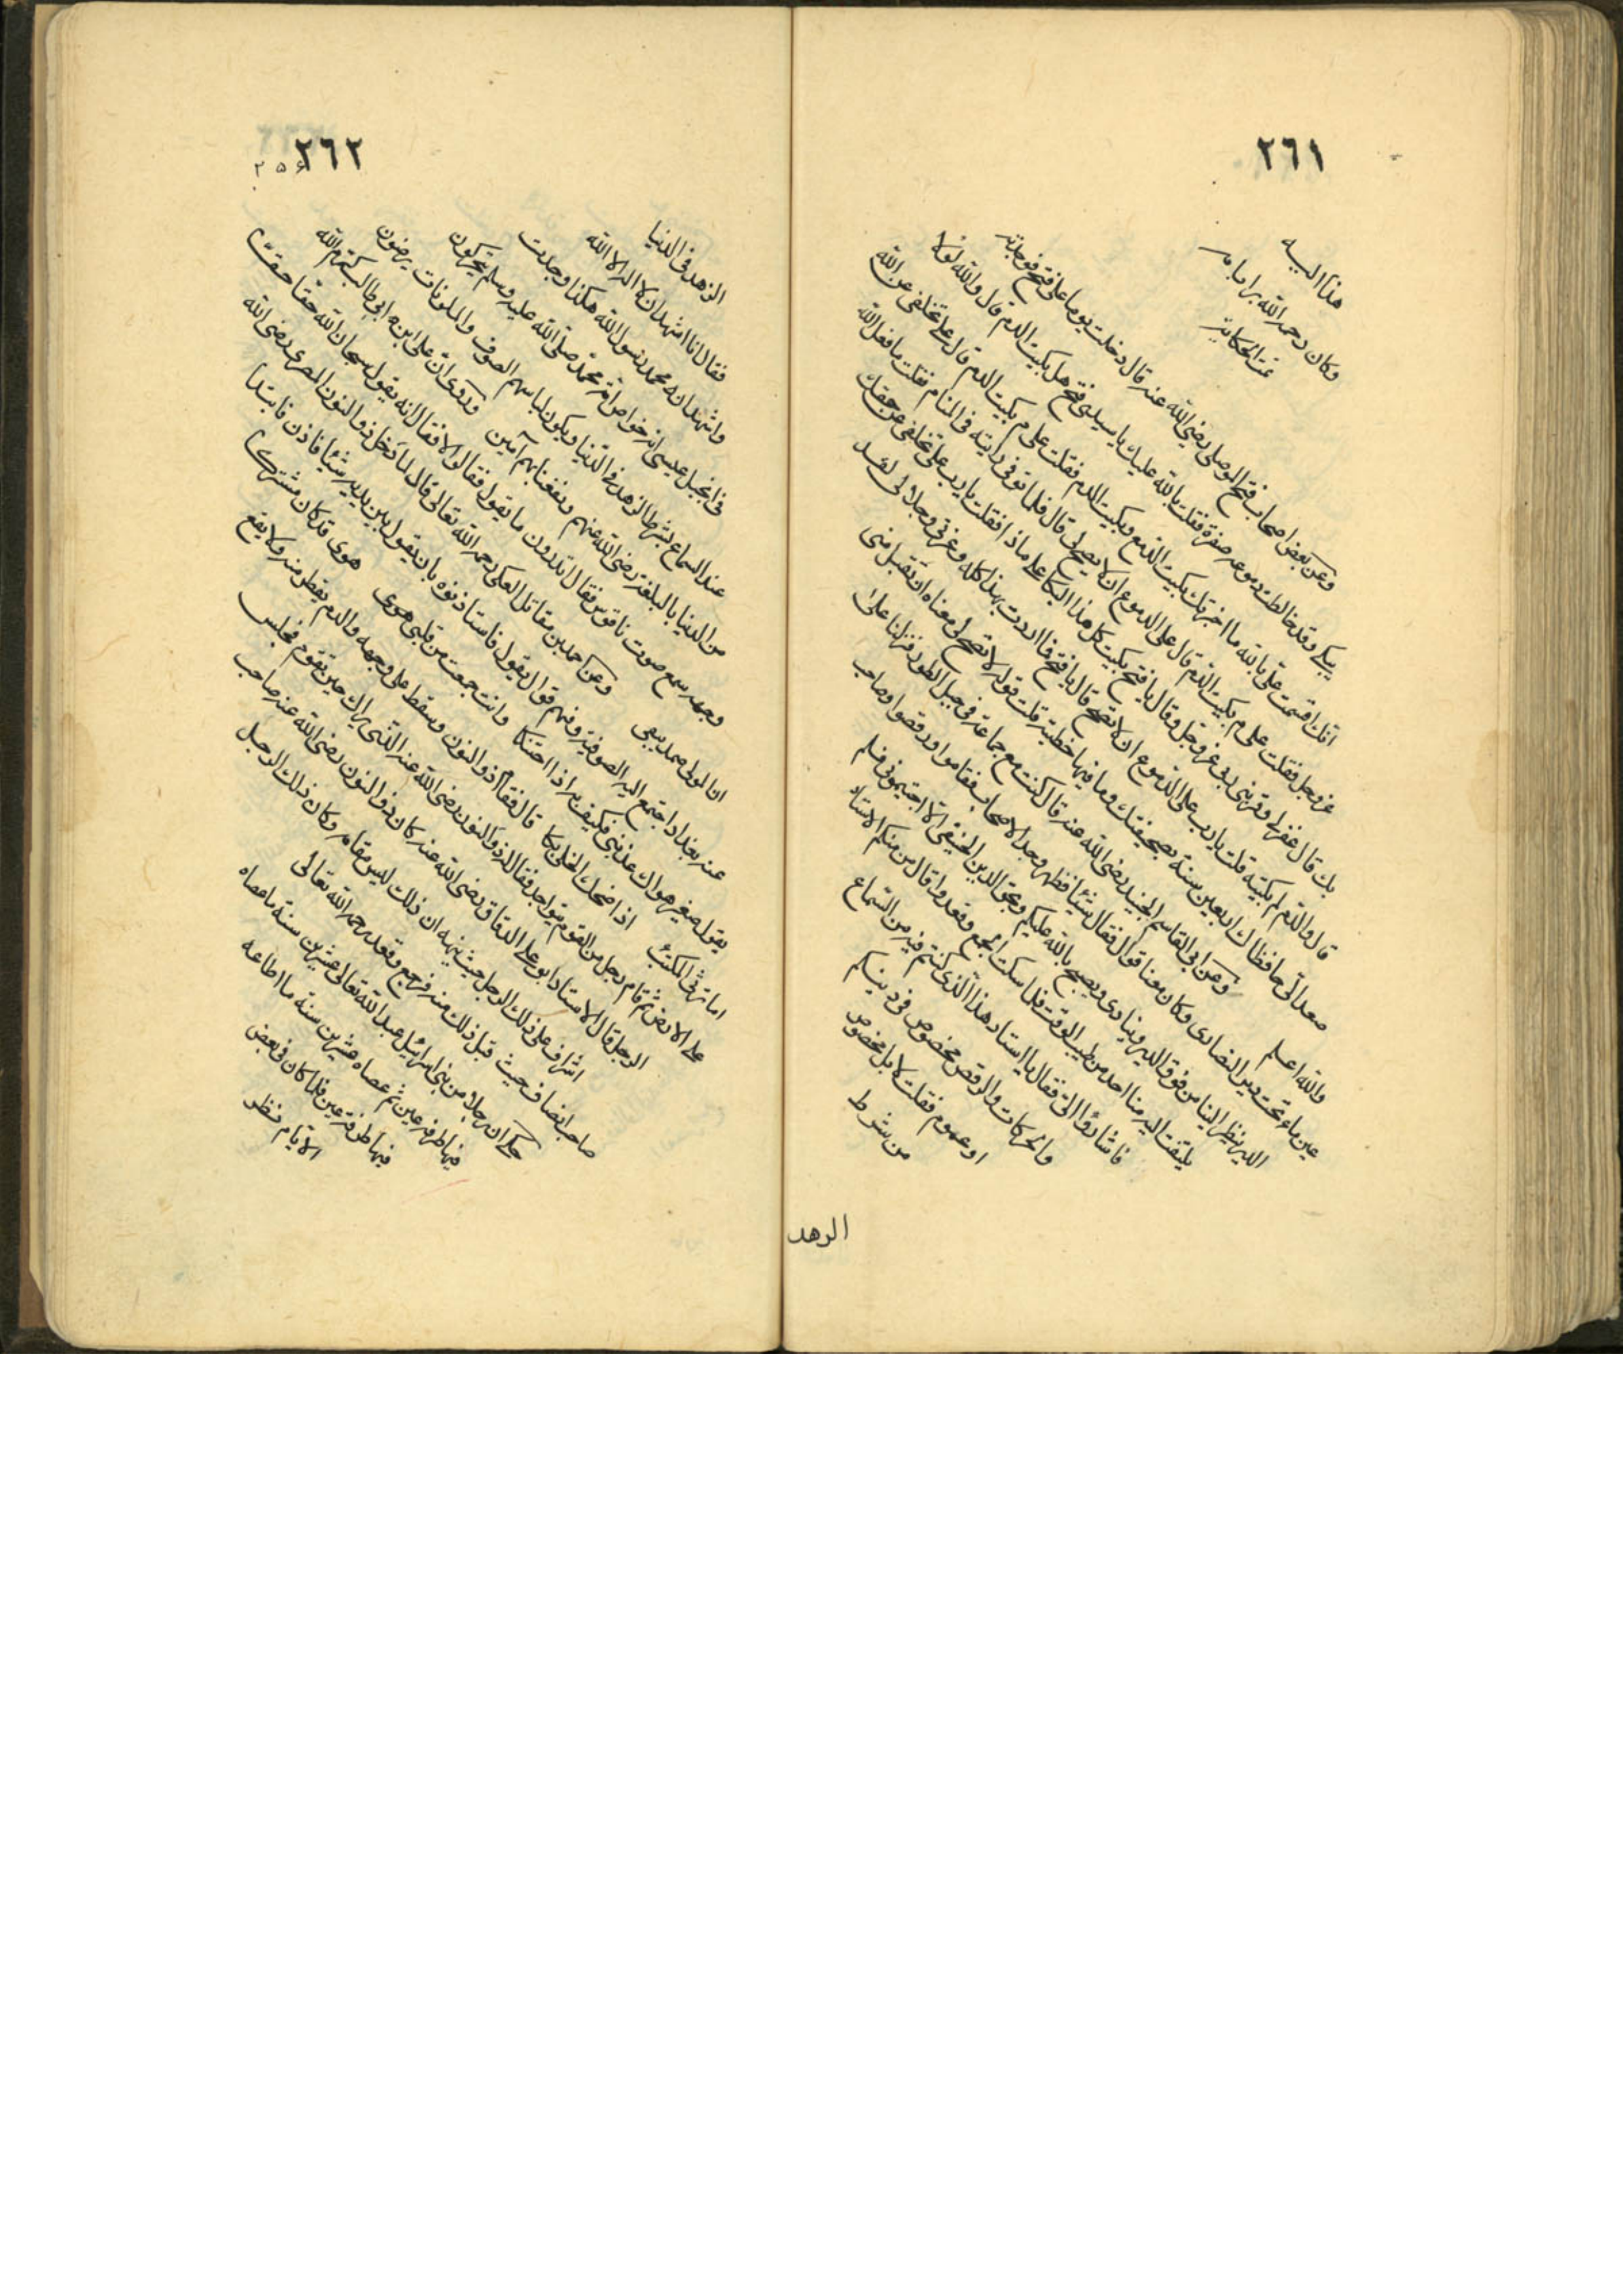 ٢٦١
هذا اليه
وكان رحمه الله
تمت الحكاية
وعن بعض اصحاب فتح الموصلي رضي الله عنه قال دخلت يوما على فتح فوجدته
يبكي وقد خالطت دموعه صفرة فقلت بالله عليك يا سيدي فتح هل بكيت الدم قال والله لولا
انك اقسمت علي بالله ما اخبرتك بكيت الدمع وبكيت الدم فقلت على م بكيت الدم قال على تخلفي عن الله
عز وجل فقلت على م بكيت الدم قال على الدموع ان لا يصح لي قال فلما توفي رايته في المنام فقلت ما فعل الله
بك قال غفر لي وقربني ربي عز وجل وقال يا فتح بكيت كل هذا البكا على ماذا فقلت يا رب على تخلفي عن حقك
قال والدم لم بكيته قلت يا رب على الدموع ان لا تصح قال يا فتح فما اردت بهذا كله وعزتي وجلالي لقد
صعد الي حافظاك اربعين سنة بصحيفتك وما فيها خطيئة قلت قوله لا تصح لي معناه ان تقبل مني
والله اعلم وعن ابي القاسم الجنيد رضي الله عنه قال كنت مع جماعة في جبل الطور فنزلنا على
عين ماء تحت دير النصارى وكان معنا قوال فقال شيئا فظهر وجد الاصحاب فقاموا ورقصوا وصاحب
الدير ينظر الينا من فوق الدير وينادي ويصيح بالله عليكم وبحق الدين الحنيفي الا اجتيموني فلم
يلتفت اليه منا احد من طيب الوقت فلما سكت الجمع وقعدوا قال من منكم الاستاد
فاشاروا الي فقال يا استاد هذا الذي كنتم فيه من السماع
والحركات والرقص مخصوص في دينكم
او عموم فقلت لا بل مخصوص
من شرط
الزهد
٢٦٢
الزهد في الدنيا
فقال انا اشهد ان لا اله الا الله
واشهد ان محمد رسول الله هكذا وجدت
في انجيل عيسى ان خواص امة محمد صلى الله عليه وسلم يتحركون
عند السماع بشرط الزهد في الدنيا ويكون لباسهم الصوف والملونات يرضون
من الدنيا بالبلغة رضي الله عنهم ونفعنا بهم آمين وروي ان علي ابن ابي طالب كرم الله
وجهه سمع صوت ناقوس فقال اتدرون ما يقول فقالوا لا فقال انه يقول سبحان الله حقا حقا
ان المولى صمد يبقى وعن احمد بن مقاتل العكي رحمه الله تعالى قال لما دخل ذو النون المصري رضي الله
عنه بغداد اجتمع اليه الصوفية وفيهم قوال يقول فاستاذنوه بان يقول بين يديه شيئا فاذن فابتدا
يقول صغير هواك عذبني فكيف به اذا احتنكا وانت جمعت من قلبي هوى قد كان مشتركا
اما ترثي لمكتئب اذا ضحك الخلي بكا قال فقام ذو النون وسقط على وجهه والدم يقطر منه ولا يقع
على الارض ثم قام رجل من القوم يتواجد فقال له ذو النون رضي الله عنه الذي يراك حين تقوم فجلس
الرجل قال الاستاد ابو علي الدقاق رضي الله عنه كان ذو النون رضي الله عنه صاحب
اشراف على ذلك الرجل حيث نبهه ان ذلك ليس مقامه وكان ذلك الرجل
صاحب انصاف حيث قبل ذلك منه فرجع وقعد رحمه الله تعالى
حكي ان رجلا من بني اسرائيل عبد الله تعالى عشرين سنة ما عصاه
فيها طرفة عين ثم عصاه عشرين سنة ما اطاعه
فيها طرفة عين فلما كان في بعض
الايام نظر